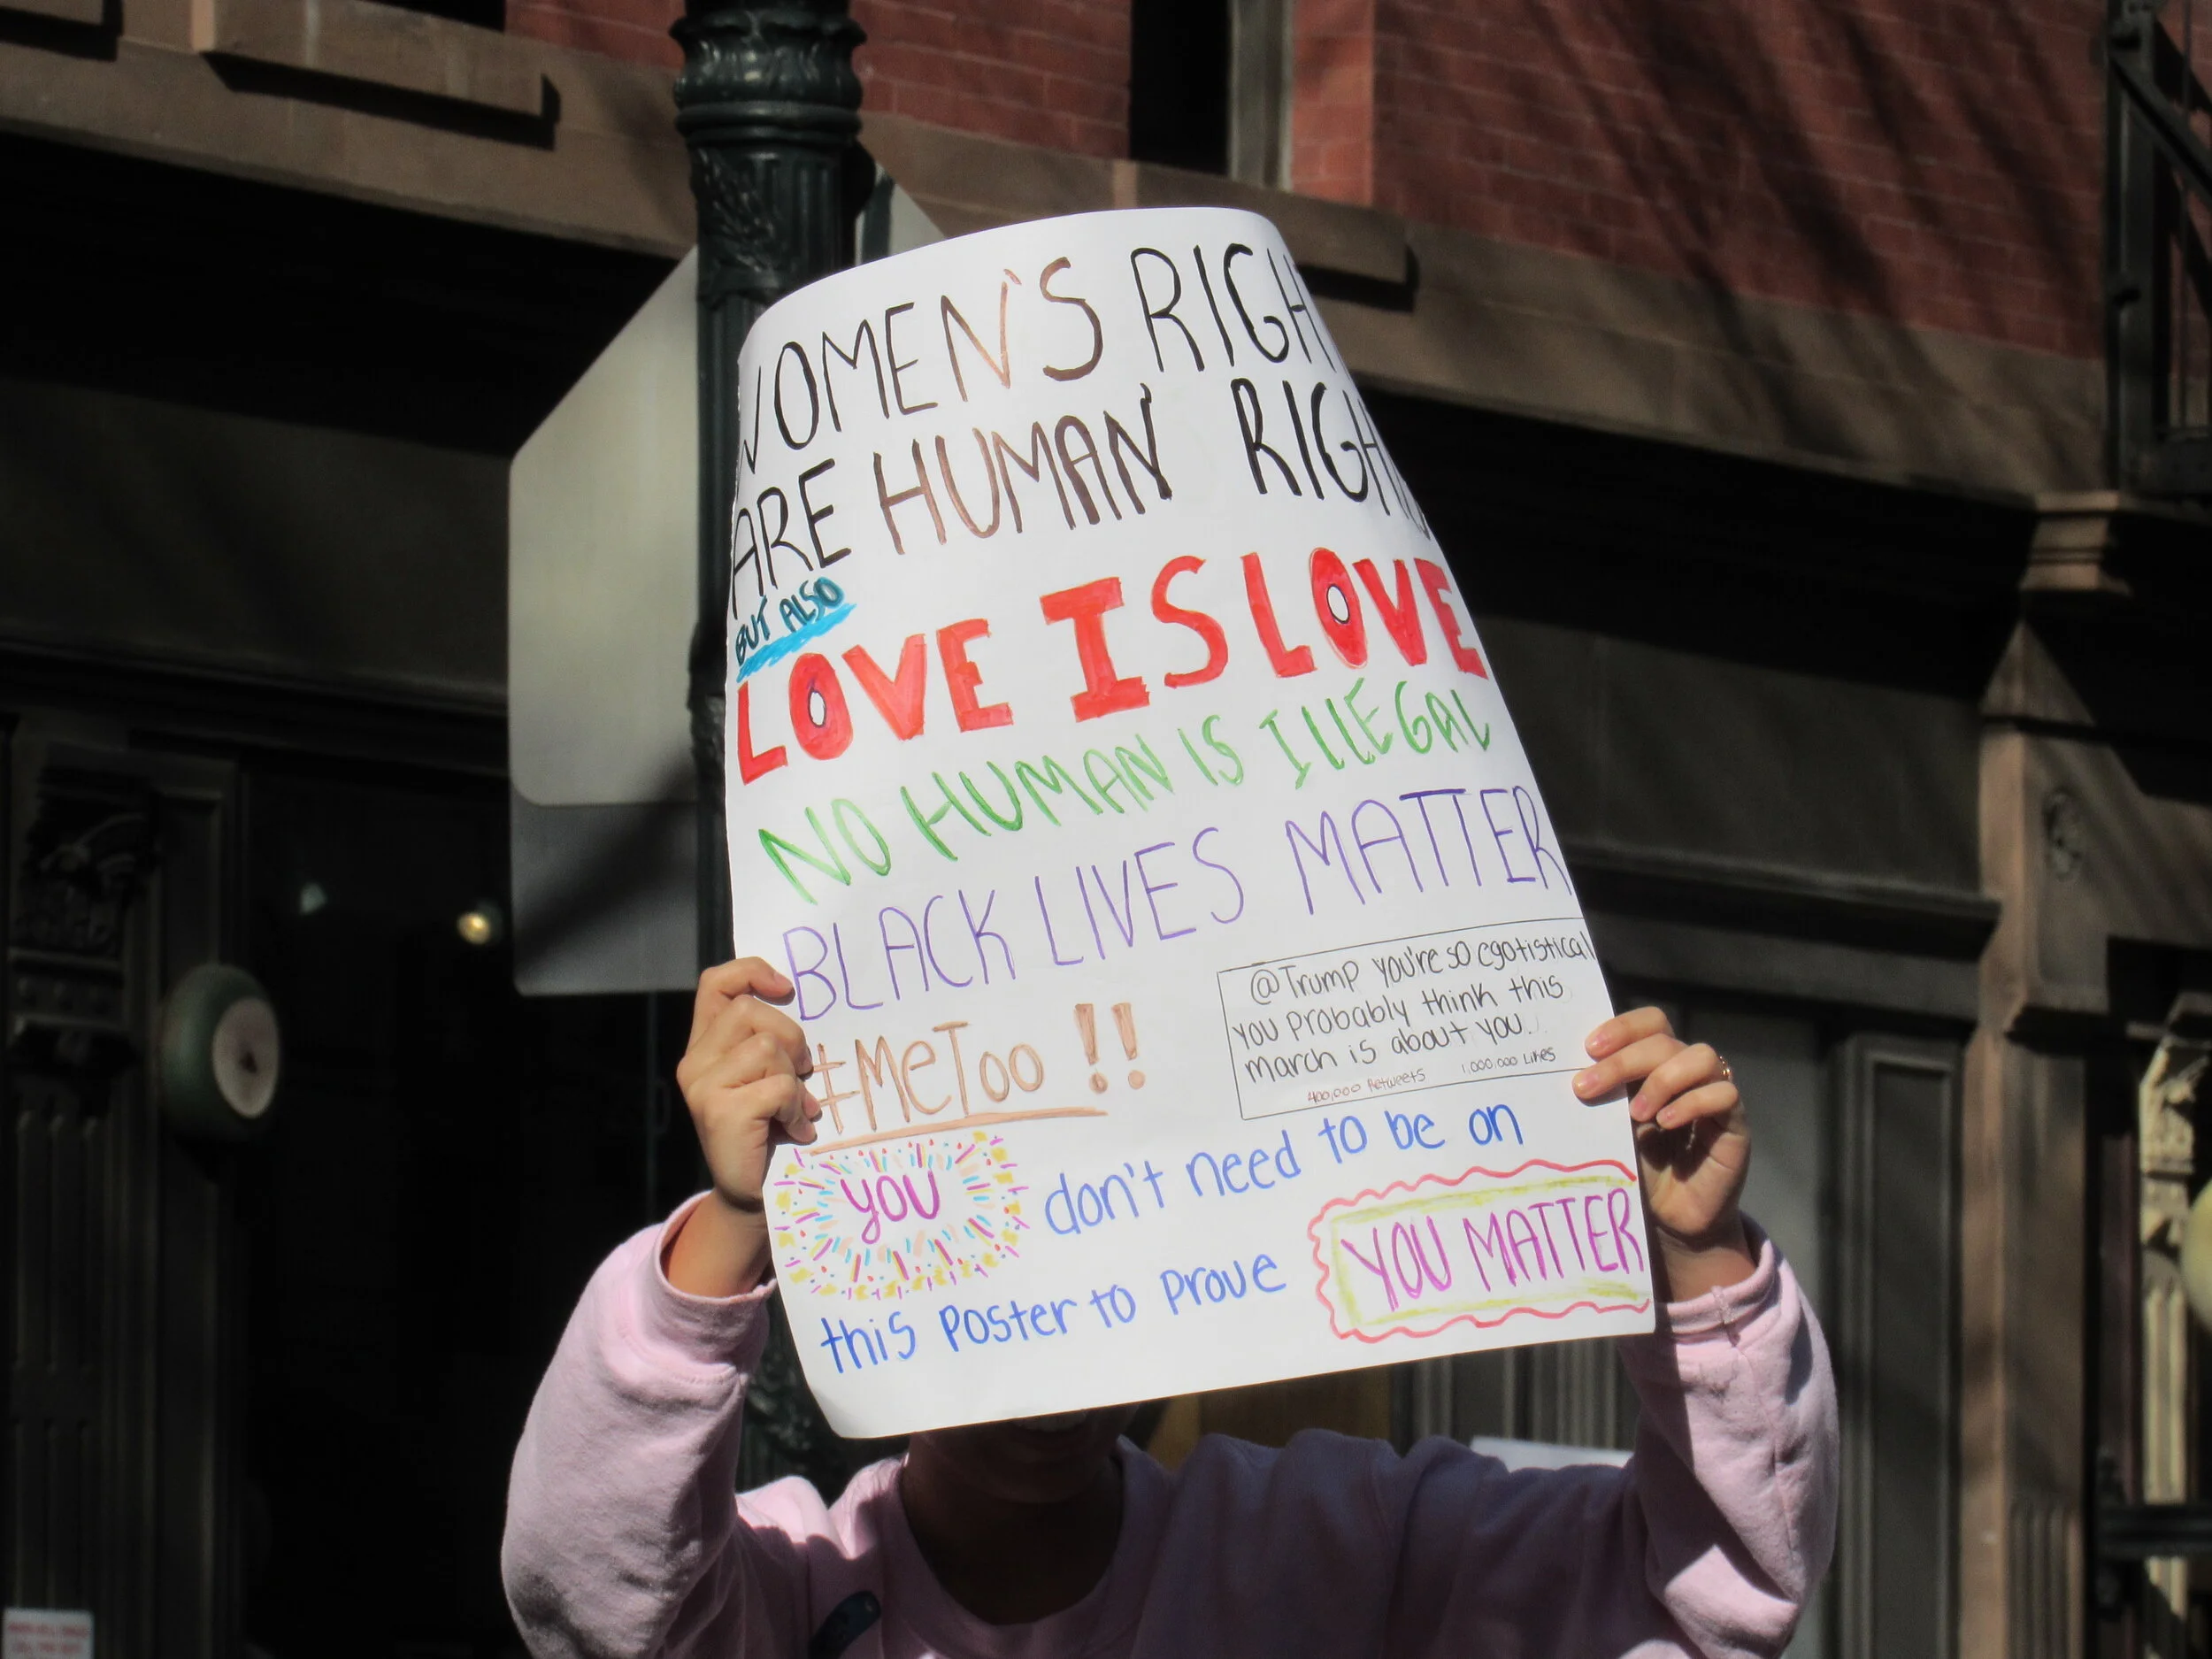 WOMEN'S RIGH
ARE HUMAN RIGH
BUT ALSO
LOVE IS LOVE
NO HUMAN IS ILLEGAL
BLACK LIVES MATTER
#MeToo!!
@Trump you're so egotistical
you probably think this
march is about you..
400,000 Retweets 1,000,000 Likes
you don't need to be on
this poster to prove YOU MATTER